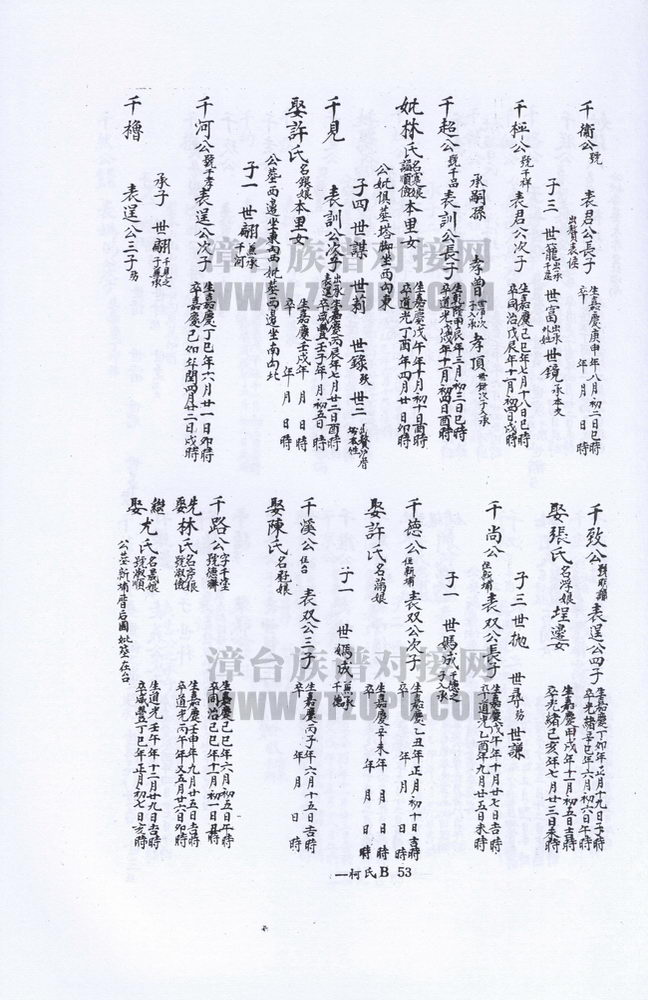 千衛公號 表君公長子 出贅表侯 生嘉慶庚申年八月初二日巳時 卒 年 月 日 時
子三 世籠出承千定 世富出承外姓 世鏡承本夫
千極公號千祥 表君公次子 生嘉慶己巳年七月十八日巳時 卒同治戊辰年十一月初四日戌時
承嗣孫 孝曾 孝頂
千超公號千品 表訓公長子 卒道光戊戌年十二月初四日酉時
妣林氏 本里女 生嘉慶戊午年十月初十日酉時 卒道光丁酉年四月廿日卯時
公妣俱墓塔脚坐西向東
子四 世謀 世莉 世錄殁 世三
千見 表訓公次子 生嘉慶丙辰年七月廿二日酉時 卒咸豐壬子年 月初五日 時
娶許氏名銀娘本里女 生嘉慶壬戌年 月 日 時 卒 年 月 日 時
公墓西邊坐東向西妣墓西邊坐南向北
子一 世翩兼承千河
千河公號千孝 表送公次子 生嘉慶丁巳年六月廿一日卯時 卒嘉慶己卯年閏四月廿二日戌時
承子 世翩千見之子兼承
千櫓 表送公三子殇
千致公 表送公四子 生嘉慶丁卯年正月十九日子時 卒光緒辛巳年六月初六日午時
娶張氏名浮娘埕邊女 生嘉慶甲戌年十一月初五日吉時 卒光緒己亥年七月廿三日未時
子三 世抛 世尋殇 世謙
千尚公住新埔 表双公長子 生嘉慶戊午年十月廿七日吉時 卒道光乙酉年九月廿五日未時
子一 世媽成千德之子入承
千德公住新埔 表双公次子 生嘉慶乙丑年正月初十日吉時 卒 年 月 日 時
娶許氏名滿娘 生嘉慶辛未年 月 日 時 卒 年 月 日 時
子一 世媽成兼承千德
千溪公住台 表双公三子 生嘉慶丙子年六月十五日吉時 卒 年 月 日 時
娶陳氏名尉娘
千路公字千宝號德聯 生嘉慶己巳年六月初五日午時 卒同治己巳年十一月初一日丑時
先娶林氏 號淑儉 生嘉慶壬申年九月廿五日吉時 卒道光丙午年又五月廿六日卯時
繼娶尤氏 號淑順 生道光壬午年十二月廿九日吉時 卒咸豐丁巳年正月初七日亥時
公墓新埔厝后園妣墓在台
漳台族谱对接网
www.zizupu.com
漳台族谱对接网
www.zizupu.com
一柯氏B 53